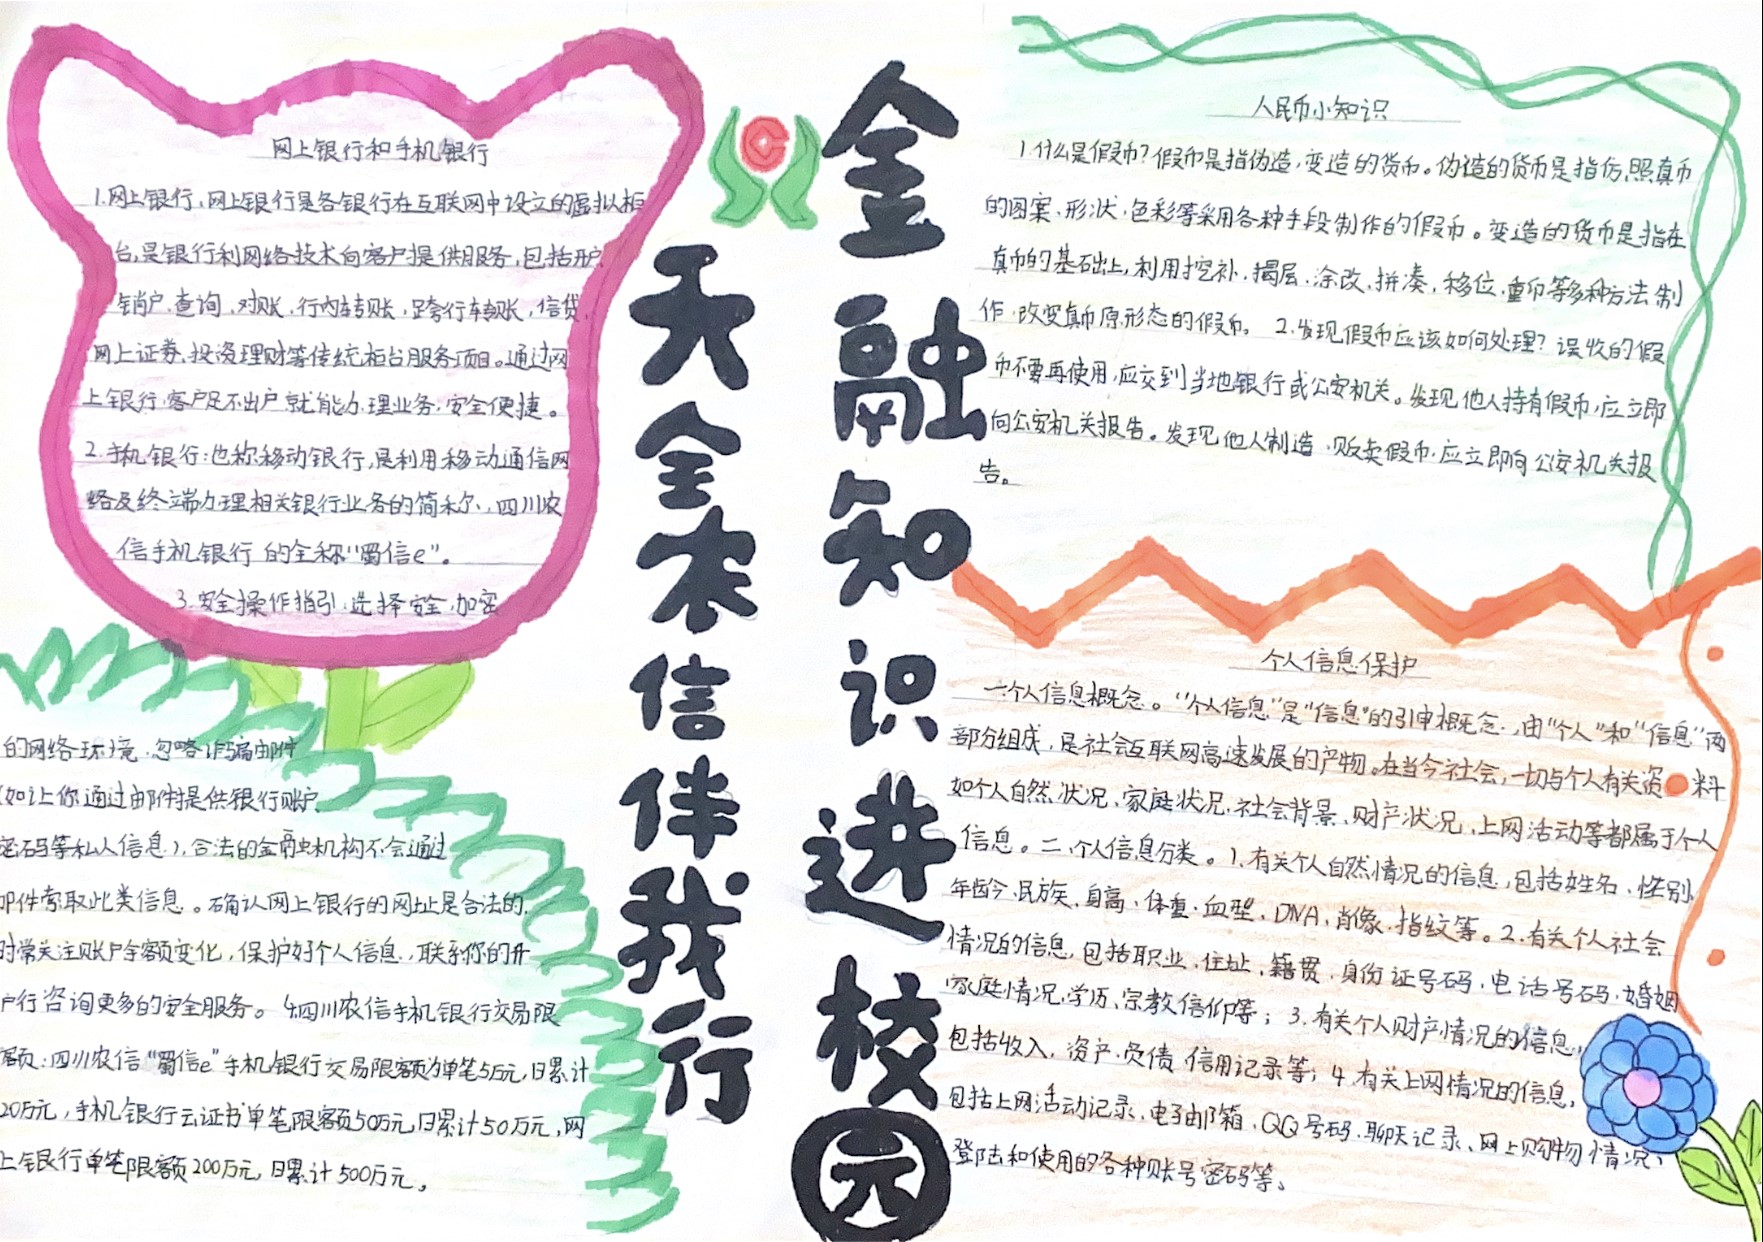 金融知识进校园
天全农信伴我行
网上银行和手机银行
1.网上银行:网上银行是各银行在互联网中设立的虚拟柜
台,是银行利网络技术向客户提供服务,包括开户、
销户、查询、对账、行内转账、跨行车转账、信贷、
网上证券、投资理财等传统柜台服务项目。通过网
上银行,客户足不出户就能办理业务,安全便捷。
2.手机银行:也称移动银行,是利用移动通信网
络及终端办理相关银行业务的简称、四川农
信手机银行的全称“蜀信e”。
3.安全操作指引:选择安全、加密
的网络环境,忽略诈骗邮件
(如让你通过邮件提供银行账户、
密码等私人信息),合法的金融机构不会通过
邮件索取此类信息。确认网上银行的网址是合法的,
时常关注账户余额变化,保护好个人信息,联系你的开
户行咨询更多的安全服务。4.四川农信手机银行交易限
额:四川农信“蜀信e”手机银行交易限额为单笔5万元,日累计
20万元,手机银行云证书单笔限额50万元,日累计50万元,网
上银行单笔限额200万元,日累计500万元。
人民币小知识
1.什么是假币?假币是指伪造,变造的货币。伪造的货币是指仿照真币
的图案、形状、色彩等采用各种手段制作的假币。变造的货币是指在
真币的基础上,利用挖补、揭层、涂改、拼凑、移位、重币等多种方法制
作,改变真币原形态的假币。2.发现假币应该如何处理?误收的假
币不要再使用,应交到当地银行或公安机关。发现他人持有假币,应立即
向公安机关报告。发现他人制造、贩卖假币,应立即向公安机关报
告。
个人信息保护
一个人信息概念。“个人信息”是“信息”的引申概念,由“个人”和“信息”两
部分组成,是社会互联网高速发展的产物。在当今社会,一切与个人有关资料
如个人自然状况、家庭状况、社会背景、财产状况、上网活动等都属于个人
信息。二、个人信息分类。1.有关个人自然情况的信息,包括姓名、性别、
年龄、民族、身高、体重、血型、DNA、肖像、指纹等。2.有关个人社会
情况的信息,包括职业、住址、籍贯、身份证号码、电话号码、婚姻
家庭情况,学历、宗教信仰等;3.有关个人财产情况的信息,
包括收入、资产、负债、信用记录等;4.有关上网情况的信息,
包括上网活动记录、电子邮箱、QQ号码、聊天记录、网上购物情况、
登陆和使用的各种账号密码等。